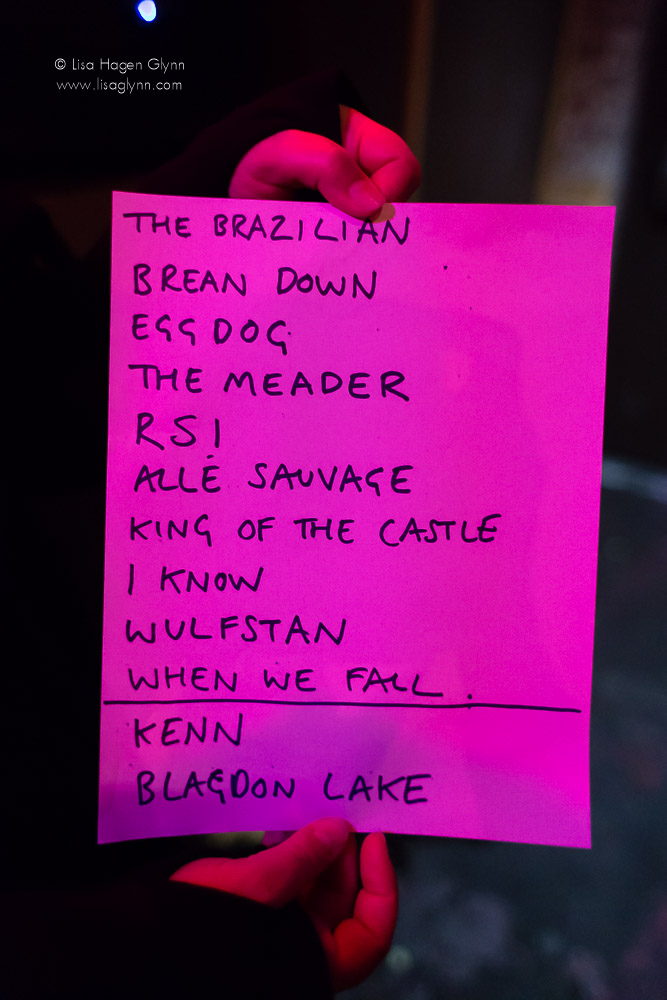 © Lisa Hagen Glynn
www.lisaglynn.com
THE BRAZILIAN
BREAN DOWN
EGGDOG
THE MEADER
RSI
ALLE SAUVAGE
KING OF THE CASTLE
I KNOW
WULFSTAN
WHEN WE FALL.
KENN
BLAGDON LAKE